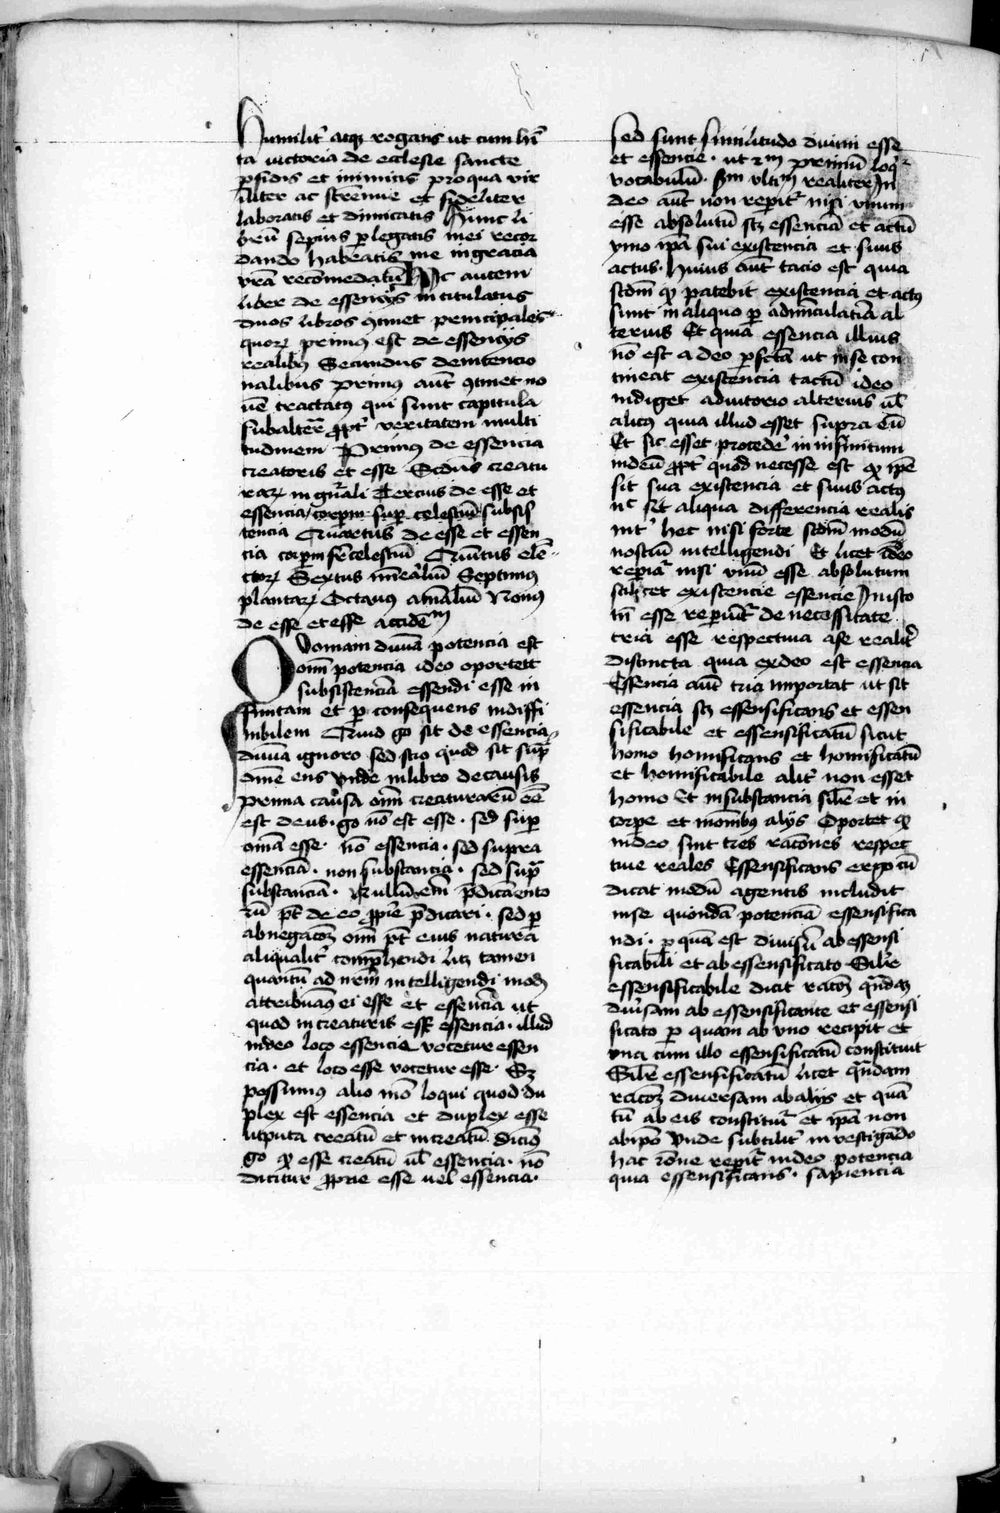 Humilit᷑ atqꝫ rogans ut cum hr̄
ta victoria de ecclesie sancte
ꝑfidis et inimicis pro qua vir
iliter ac strēnue et fideliter
laboratis et dimicatis Hunc li
brū sepius ꝑlegatis mei recor
dando habeatis me in gracia
vrā recōmēdatū Hic autem
liber de essencijs intitulatus
duos libros ꝯtinet principales
quoꝝ primus est de essencijs
realibꝫ Secundus de intencio
nalibus Primꝰ aūt ꝯtinet no
uē tractatꝰ qui sunt capitula
subaltern̄ ꝓpt᷑ veritatem multi
tudinem Primꝰ de essencia
creatoris et esse Scdus creatu
raꝝ in gn̄rali Tercius de esse et
essencia corpm̄ suꝑ celestiū subsis
tencia Quartus de esse et essen
cia corpm̄ celestiū Quintus elē
toꝝ Sextus mineraliū Septimꝰ
plantaꝝ Octauꝰ aīaliū Nonꝰ
de esse et esse accidēm
Quoniam diuina potencia est
om̄i potencia ideo oportet
subsistenciā essendi esse in
finitam et ꝑ consequens indiffi
nibilem Quid go sit de essencia
diuina ignoro sed scio quod sit supͣ
om̄e ens vnde in libro de causis
prima causa om̄i creaturarū eē
est deus. go nō est esse. sed suꝑ
om̄ā esse. nō essencia. sed supra
essenciā. non substancia. sed supͣ
substanciā. Nullū em̄ p̄dicamento
rū pt̄ de eo ꝓprie p̄dicari. sed ꝑ
abnegacōꝫ om̄i pt̄ eius natura
aliqualit᷑ comp̄hendi lꝫ tamen
quantū ad nr̄m intelligendi modū
attribuaꝰ ei esse et essenciā ut
quod in creaturis esset essencia. illud
in deo loco essencia vocetur essen
cia. et loco esse vocetur esse. Sꝫ
possumꝰ alio mō loqui quod du
plex est essencia et duplex esse
utputa creatū et increatū. dicimꝰ
go qꝫ esse creatū ul̄ essencia. nō
dicitur ꝓprie esse uel essencia.
sed sunt similitudo diuini esse
et essencie. ut 2m primū loqͬ
vocabulū. Sm̄ vltīm realiter In
deo aūt non reperit᷑ nisi vnum
esse absolutū scꝫ essenciā et actū
ymo ipā sui existencia et suus
actus. Huius aūt racio est quia
scdm̄ qꝫ patebit existencia et actꝰ
sunt in aliquo ꝑ adminiculatiā al
terius Et quia essencia illius
nō est a deo ꝑfcta ut in se con
tineat existencia tactū ideo
indiget adiutorio alterius ul̄
alicꝰ quia illud esset supra eū
Et sic esset procede᷑ in infinitum
in deū ꝓpt᷑ quod necesse est qꝫ ipē
sit sua existencia et suus actꝰ
nc̄ sit aliqua differencia realis
int᷑ hec nisi forte scdm̄ modū
nostrū intelligendi Et licet ideo
reperiat᷑ nisi vnū esse absolutum
scilicet existencie essencie In isto
tn̄ esse reperiūt᷑ de necessitate
tria esse respectiua a se realit᷑
distincta quia ex deo est essencia
Essencia aūt tria importat ut sit
essencia scꝫ essensificans et essen
sificabile et essensificatū sicut
homo homificans et homificatū
et homificabile alit᷑ non esset
homo Et in substancia silīe et in
corpore et in om̄ibus alijs Oportet qꝫ
in deo sint tres racōnes respec
tiue reales Essensificans ergo cū
dicat modū agentis includit
in se quondā potenciā essensifica
ndi. ꝑ quā est diuisū ab essensi
ficabili et ab essensificato Silīe
essensificabile dicit racōꝫ qn̄dā
diuisam ab essensificante et essensi
ficato ꝑ quam ab vno recipit et
vna cum illo essensificatū constituit
Silīe essensificatū licet qn̄dam
racōꝫ diuersam ab alijs et quā
tū ab eis constituit᷑ et ipā non
ab ipō Vnde subtilit᷑ inuestigādo
hac rōne reperit᷑ in deo potencia
quia essensificans. sapiencia